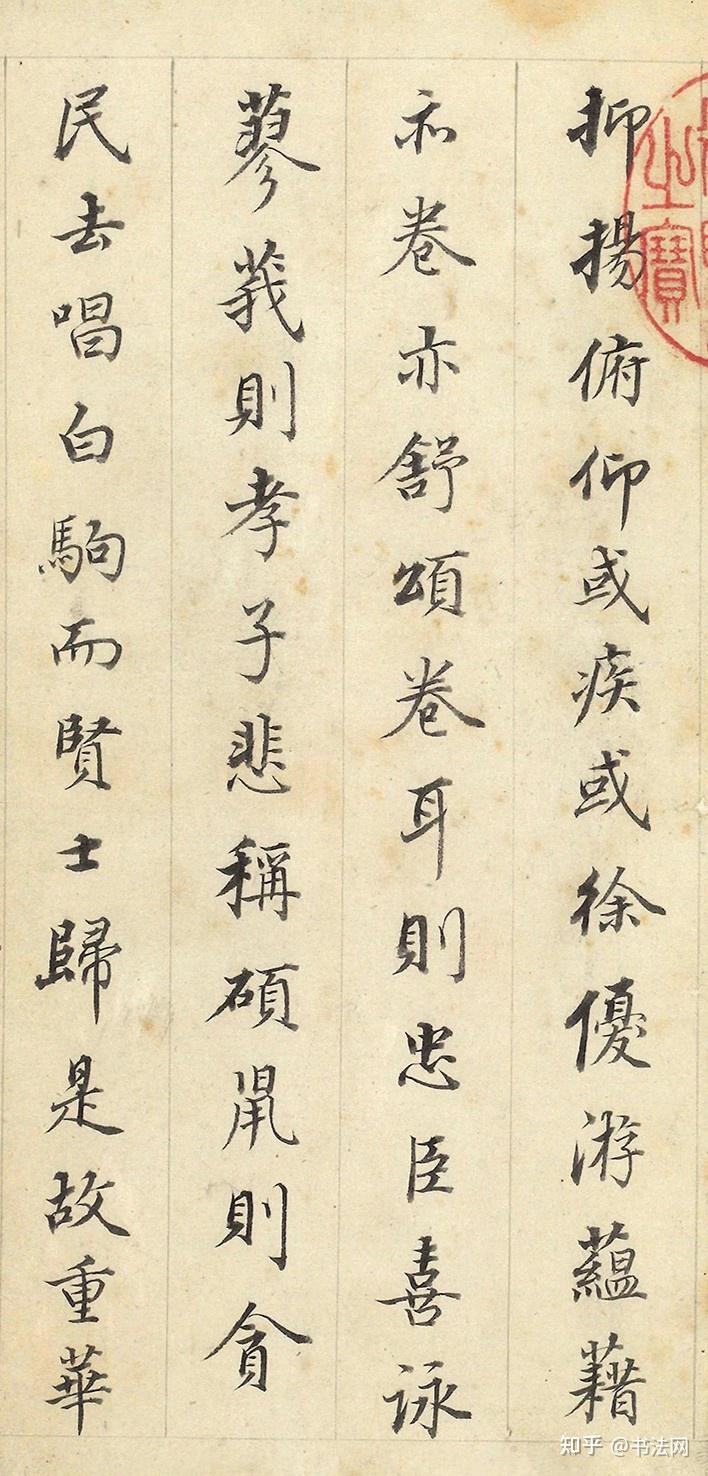 抑揚俯仰或疾或徐優游蘊藉
亦卷亦舒頌卷耳則忠臣喜詠
蓼莪則孝子悲稱碩鼠則貪
民去唱白駒而賢士歸是故重華
之寶
知乎 @书法网